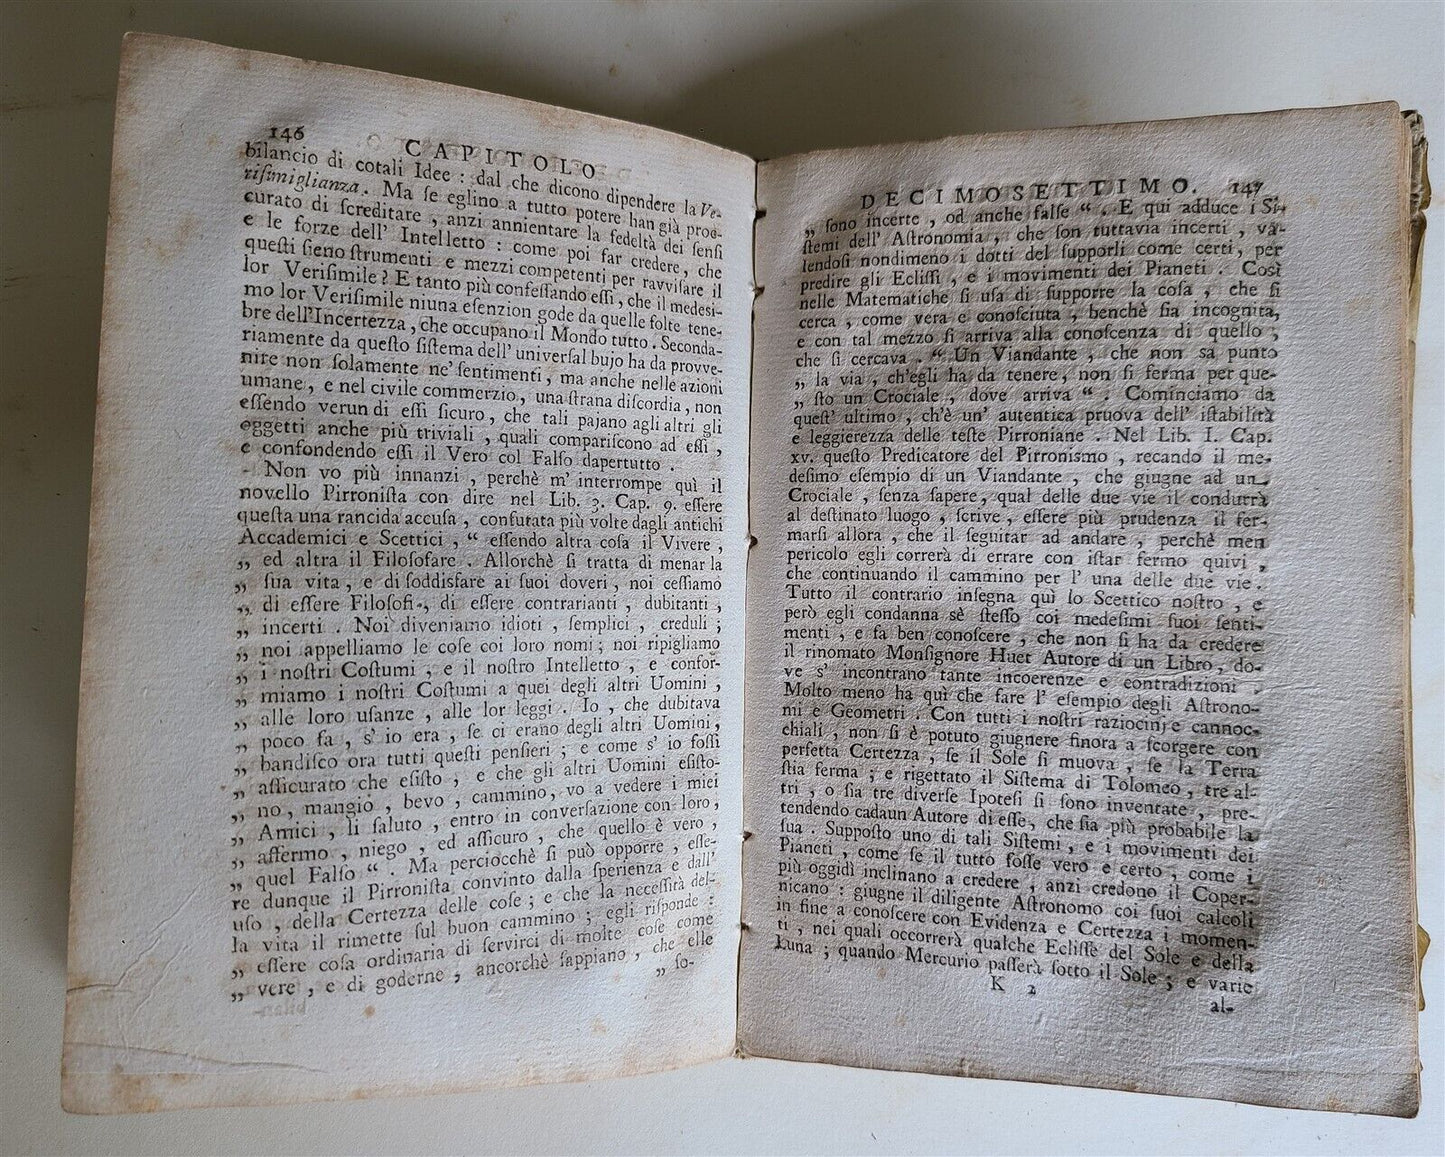 146
CAPITOLO
bilancio di cotali Idee : dal che dicono dipendere la Ve-
risimiglianza. Ma se eglino a tutto potere han già proc-
curato di screditare , anzi annientare la fedeltà dei sensi
e le forze dell' Intelletto : come poi far credere, che
questi sieno strumenti e mezzi competenti per ravvisare il
lor Verisimile ? E tanto più confessando essi, che il medesi-
mo lor Verisimile niuna esenzion gode da quelle folte tene-
bre dell'Incertezza, che occupano il Mondo tutto. Seconda-
riamente da questo sistema dell' universal bujo ha da provve-
nire non solamente ne' sentimenti, ma anche nelle azioni
umane, e nel civile commerzio, una strana discordia, non
essendo verun di essi sicuro, che tali pajano agli altri gli
oggetti anche più triviali , quali compariscono ad essi ,
e confondendo essi il Vero col Falso dapertutto .
Non vo più innanzi , perchè m' interrompe quì il
novello Pirronista con dire nel Lib. 3. Cap. 9. essere
questa una rancida accusa , confutata più volte dagli antichi
Accademici e Scettici , “ essendo altra cosa il Vivere ,
„ ed altra il Filosofare . Allorchè si tratta di menar la
„ sua vita , e di soddisfare ai suoi doveri , noi cessiamo
„ di essere Filosofi , di essere contrarianti , dubitanti ,
„ incerti . Noi diveniamo idioti , semplici , creduli ;
„ noi appelliamo le cose coi loro nomi ; noi ripigliamo
„ i nostri Costumi , e il nostro Intelletto , e confor-
„ miamo i nostri Costumi a quei degli altri Uomini ,
„ alle loro usanze , alle lor leggi . Io , che dubitava
„ poco fa , s' io era , se ci erano degli altri Uomini,
„ bandisco ora tutti questi pensieri ; e come s' io fossi
„ assicurato che esisto , e che gli altri Uomini esisto-
„ no , mangio , bevo , cammino, vo a vedere i miei
„ Amici , li saluto , entro in conversazione con loro ,
„ affermo , niego , ed assicuro , che quello è vero ,
„ quel Falso “ . Ma perciocchè si può opporre , esse-
re dunque il Pirronista convinto dalla sperienza e dall'
uso , della Certezza delle cose ; e che la necessità del-
la vita il rimette sul buon cammino ; egli risponde :
„ essere cosa ordinaria di servirci di molte cose come
„ vere , e di goderne , ancorchè sappiano , che elle
„ so-
DECIMOSETTIMO. 147
„ sono incerte , od anche false “ . E qui adduce i Si-
stemi dell' Astronomia , che son tuttavia incerti , va-
lendosi nondimeno i dotti del supporli come certi, per
predire gli Eclissi , e i movimenti dei Pianeti . Così
nelle Matematiche si usa di supporre la cosa , che si
cerca , come vera e conosciuta , benchè sia incognita,
e con tal mezzo si arriva alla conoscenza di quello ,
che si cercava . “ Un Viandante , che non sa punto
„ la via , ch'egli ha da tenere, non si ferma per que-
„ sto un Crociale , dove arriva “ . Cominciamo da
quest' ultimo , ch'è un' autentica pruova dell' istabilità
e leggierezza delle teste Pirroniane . Nel Lib. I. Cap.
xv. questo Predicatore del Pirronismo , recando il me-
desimo esempio di un Viandante , che giugne ad un
Crociale , senza sapere, qual delle due vie il condurrà
al destinato luogo , scrive , essere più prudenza il fer-
marsi allora , che il seguitar ad andare , perchè men
pericolo egli correrà di errare con istar fermo quivi ,
che continuando il cammino per l' una delle due vie .
Tutto il contrario insegna quì lo Scettico nostro , e
però egli condanna sè stesso coi medesimi suoi senti-
menti , e fa ben conoscere , che non si ha da credere
il rinomato Monsignore Huet Autore di un Libro , do-
ve s' incontrano tante incoerenze e contradizioni .
Molto meno ha quì che fare l' esempio degli Astrono-
mi e Geometri . Con tutti i nostri raziocinj e cannoc-
chiali , non si è potuto giugnere finora a scorgere con
perfetta Certezza , se il Sole si muova , se la Terra
stia ferma ; e rigettato il Sistema di Tolomeo , tre al-
tri , o sia tre diverse Ipotesi si sono inventate , pre-
tendendo cadaun Autore di esse, che sia più probabile la
sua . Supposto uno di tali Sistemi , e i movimenti dei
Pianeti , come se il tutto fosse vero e certo , come i
più oggidì inclinano a credere , anzi credono il Coper-
nicano : giugne il diligente Astronomo coi suoi calcoli
in fine a conoscere con Evidenza e Certezza i momen-
ti , nei quali occorrerà qualche Eclisse del Sole e della
Luna ; quando Mercurio passerà sotto il Sole ; e varie
K 2
al-